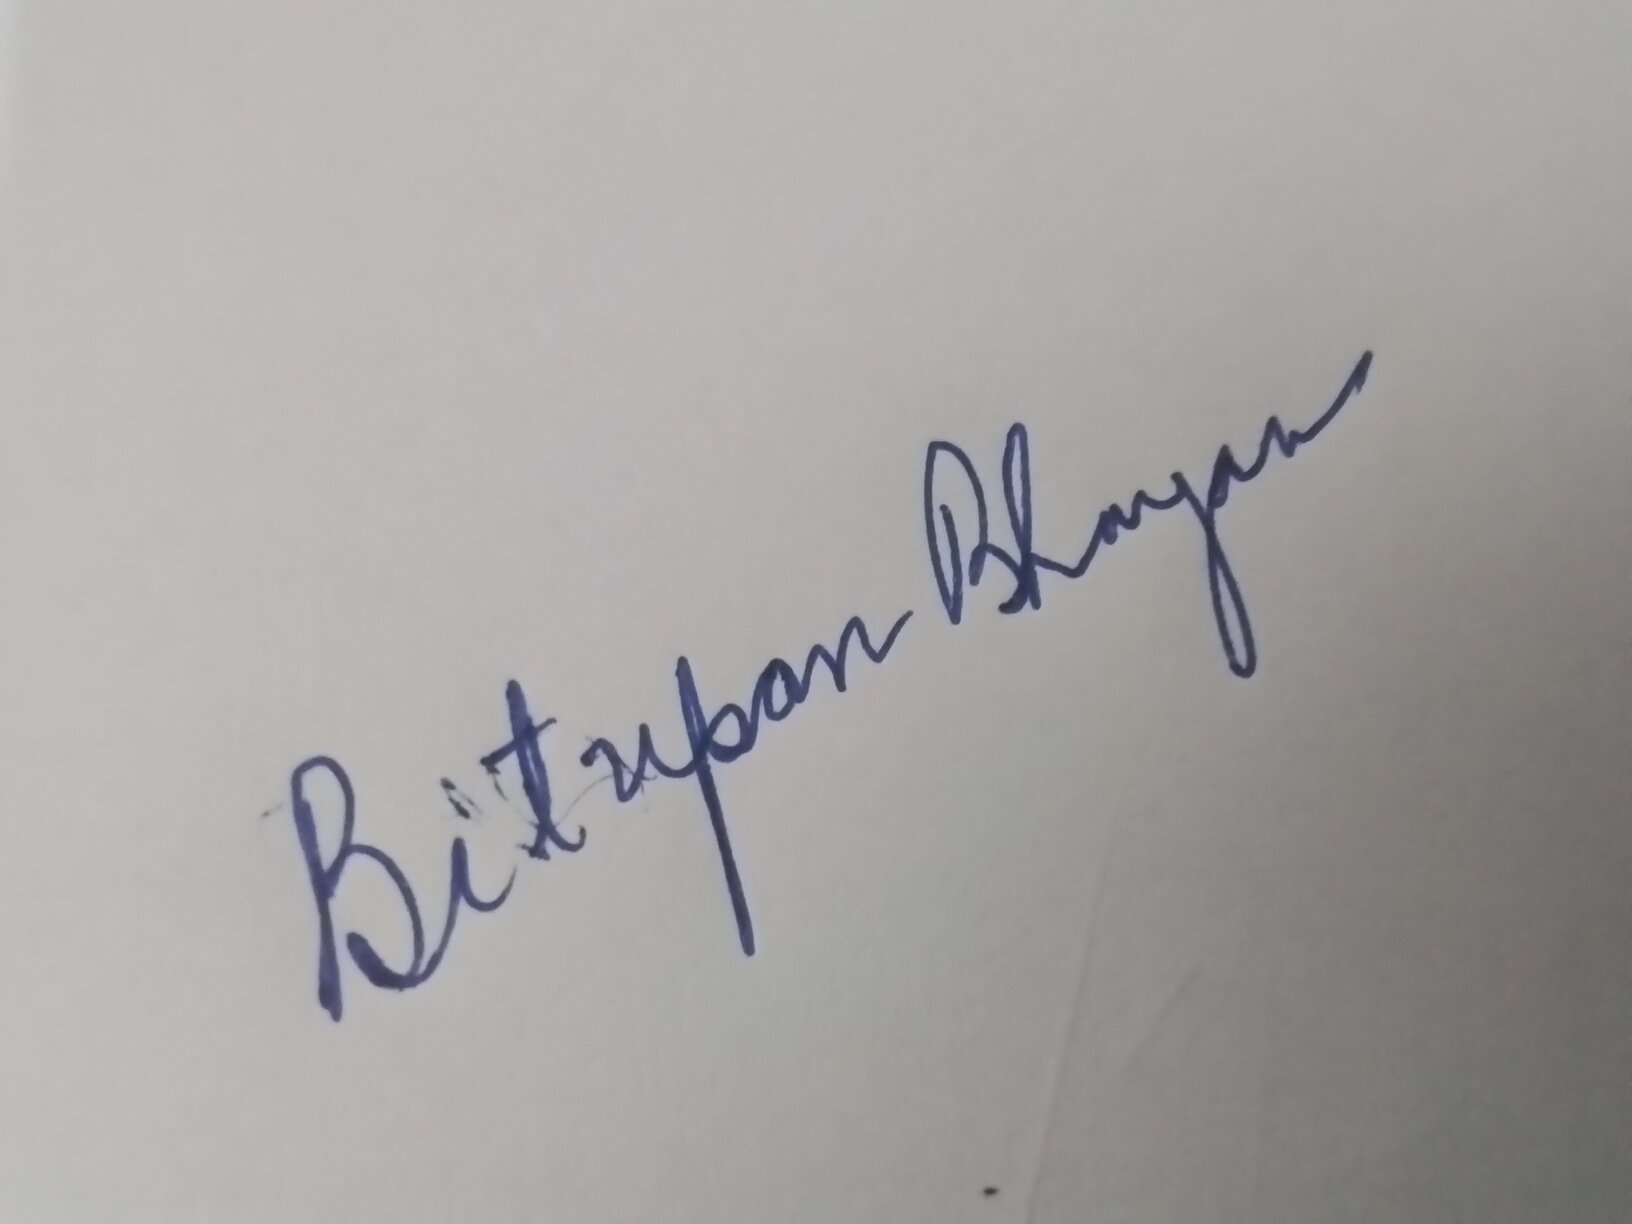 Bitupan Bhuyan